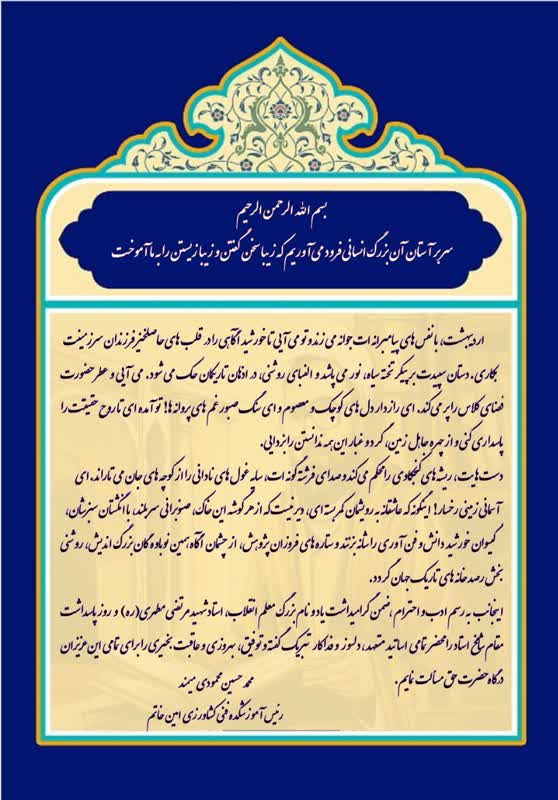 بسم الله الرحمن الرحیم
سر بر آستان آن بزرگ انسانی فرود می آوریم که زیبا سخن گفتن و زیبا زیستن را به ما آموخت
اردیبهشت، با نفس های پیامبرانه ات جوانه می زند و تو می آیی تا خورشید آگاهی را در قلب های حاصلخیز فرزندان سرزمینت
بکاری. دستان سپیدت بر پیکر تخته سیاه، نور می پاشد و الفبای روشنی، در اذهان تاریکمان حک می شود. می آیی و عطر حضورت
فضای کلاس را پر می کند. ای رازدار دل های کوچک و معصوم و ای سنگ صبور غم های پروانه ها! تو آمده ای تا روح حقیقت را
پاسداری کنی و از چهره جاهل زمین، گرد و غبار این همه ندانستن را بزدایی.
دست هایت، ریشه های کنجکاوی را محکم می کند و صدای فرشته گونه ات، سایه غول های نادانی را از کوچه های جان می تاراند. ای
آسمانی زمینی رخسار! اینگونه که عاشقانه به رویشمان کمر بسته ای، دیر نیست که از هر گوشه این خاک، صنوبرانی سربلند، با انگشتان سبزشان،
گیسوان خورشید دانش و فن آوری را شانه بزنند و ستاره های فروزان پژوهش، از چشمان آگاه همین نوباوه گان بزرگ اندیش، روشنی
بخش رصدخانه های تاریک جهان گردد.
اینجانب به رسم ادب و احترام، ضمن گرامیداشت یاد و نام بزرگ معلم انقلاب، استاد شهید مرتضی مطهری(ره) و روز پاسداشت
مقام شامخ استاد را محضر تمامی اساتید متعهد، دلسوز و فداکار تبریک گفته و توفیق، بهروزی و عاقبت بخیری را برای تمامی این عزیزان
درگاه حضرت حق مسالت نمایم.
محمد حسین محمودی میمند
رئیس آموزشکده فنی کشاورزی امین خاتم